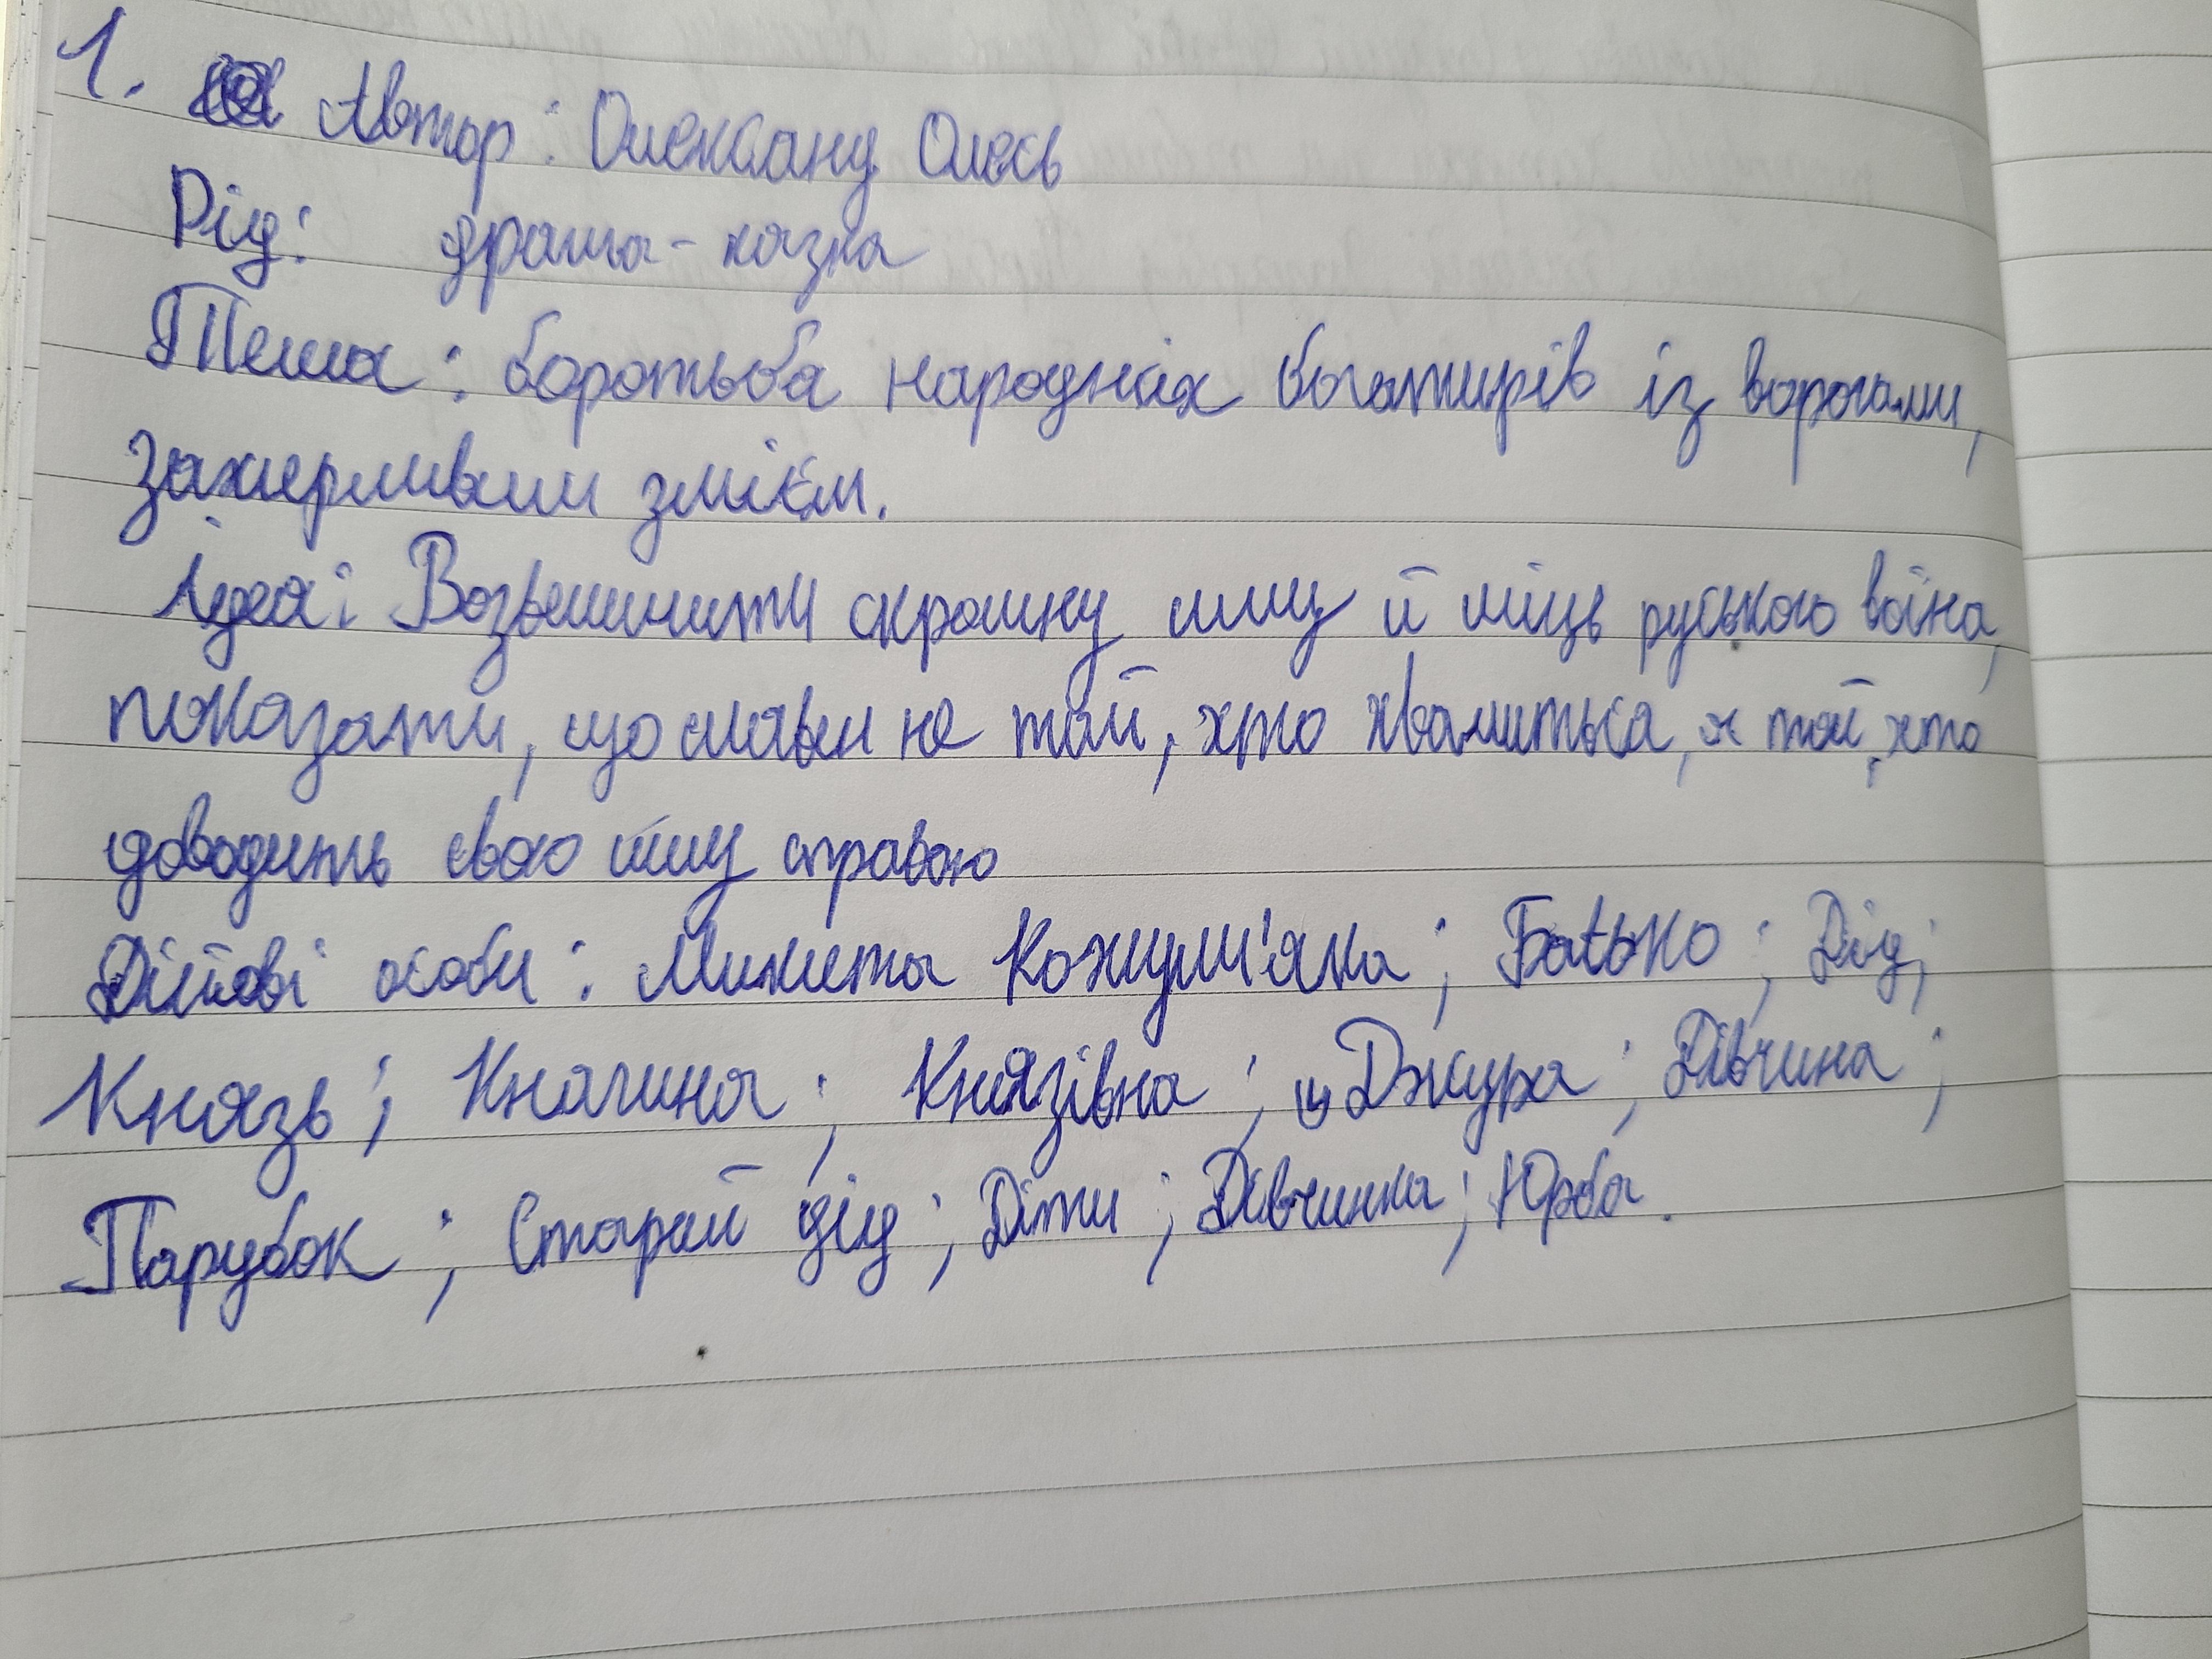 1. Автор: Олександр Олесь
Рід: драма-казка
Тема: боротьба народних богатирів із ворогами,
зажерливим змієм.
Ідея: Возвеличити скромну силу й міць руського воїна,
показати, що славен не той, хто хвалиться, а той, хто
доводить свою силу справою
Дійові особи: Микита Кожум'яка; Батько; Дід;
Князь; Княгиня; Князівна; Джура; Дівчина;
Парубок; Старий дід; Діти; Дівчинка; Юрба.